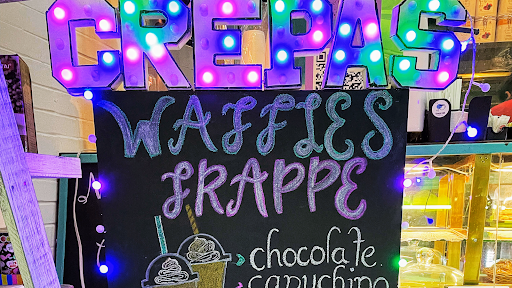 CREPAS
WAFFLES
FRAPPE
chocolate
capuchino